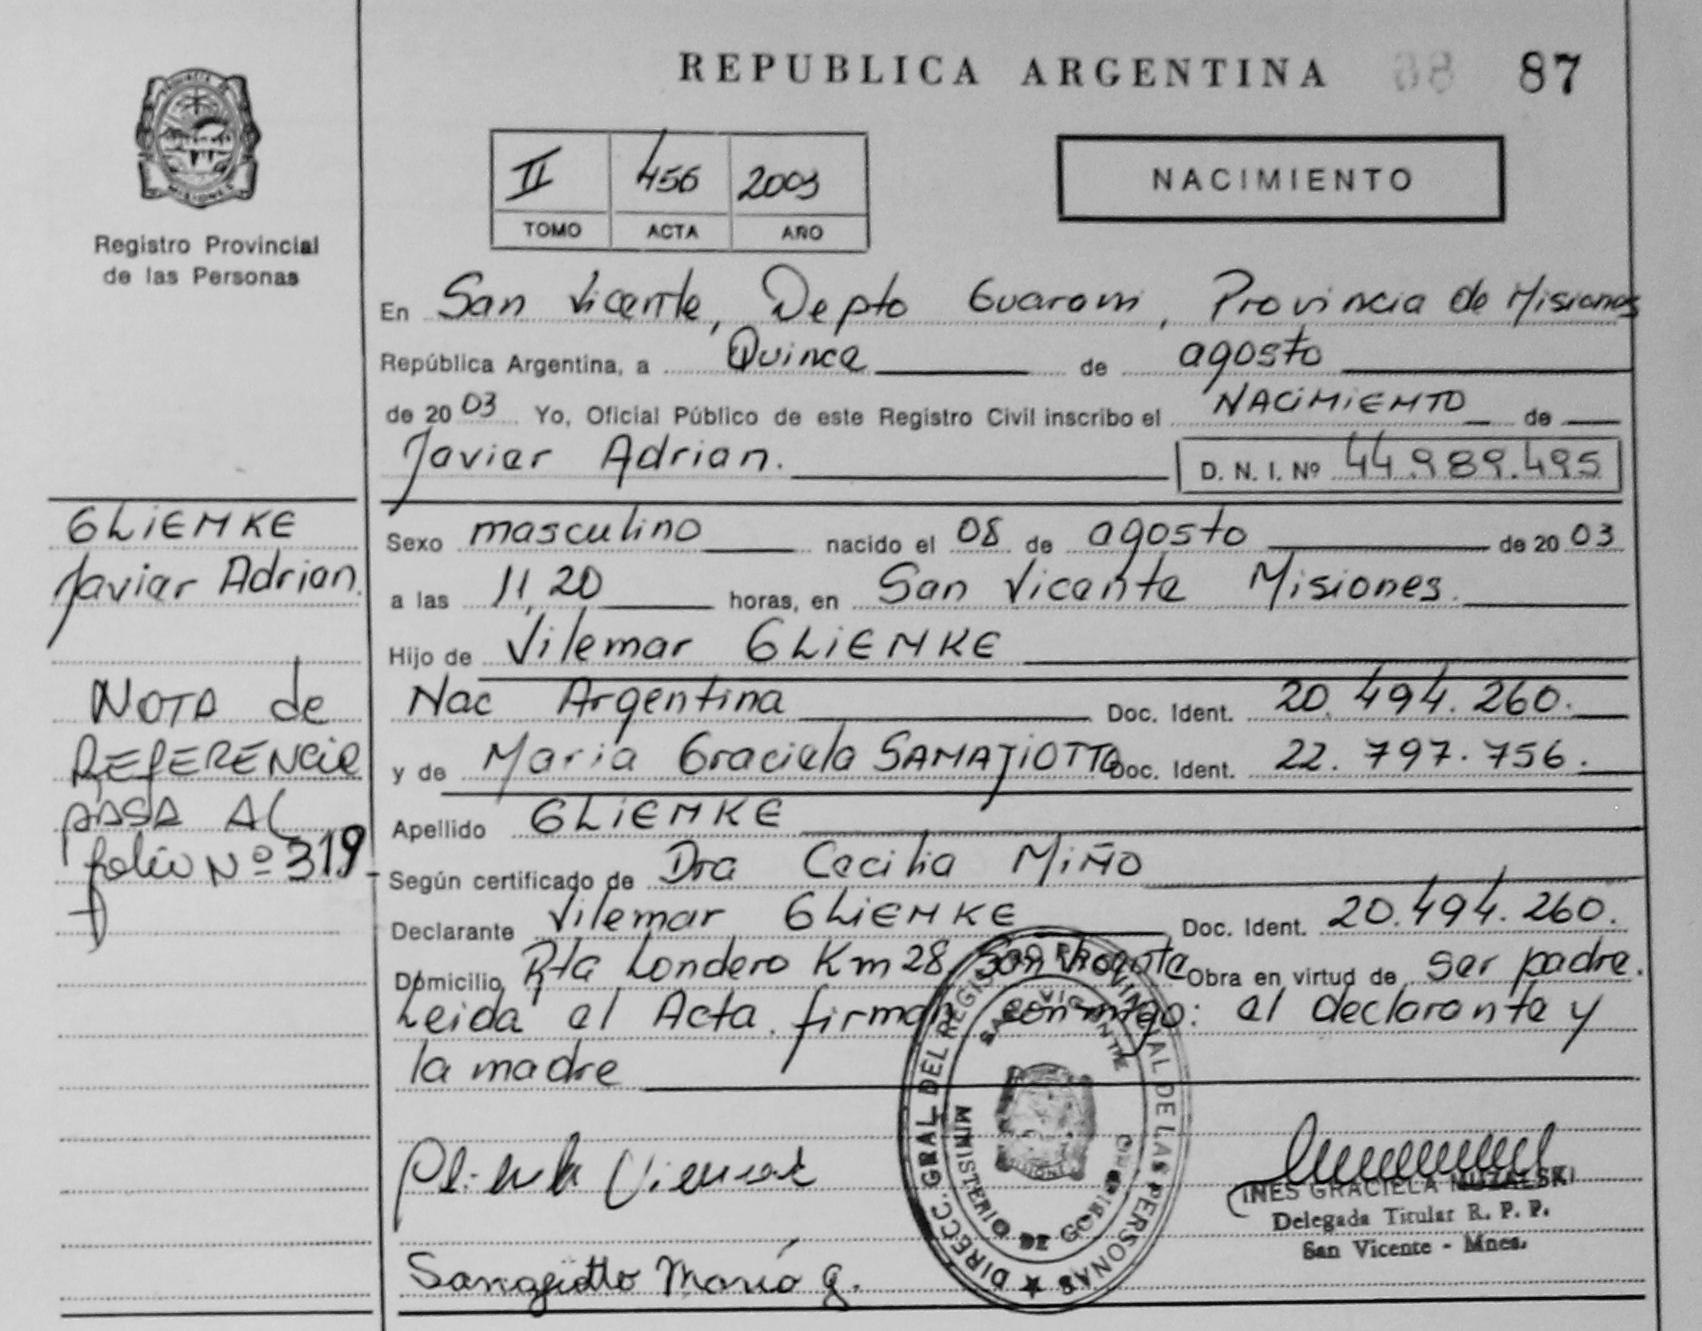 REPUBLICA ARGENTINA 88 87
II 456 2003
TOMO ACTA AÑO
NACIMIENTO
MISIONES
Registro Provincial
de las Personas
En San Vicente, Depto Guarani, Provincia de Misiones
República Argentina, a Quince de agosto
de 2003 Yo, Oficial Público de este Registro Civil inscribo el NACIMIENTO de
Javier Adrian. D. N. I. Nº 44.989.495
Sexo masculino nacido el 08 de agosto de 2003
a las 11,20 horas, en San Vicente Misiones.
Hijo de Vilemar GLIEMKE
Nac Argentina Doc. Ident. 20.494.260.
y de Maria Graciela Doc. Ident. 22.797.756.
Apellido GLIEMKE
Según certificado de Dra Cecilia MIÑO
Declarante Vilemar GLIEMKE Doc. Ident. 20.494.260.
Domicilio Rta Londero Km 28, San Vicente Obra en virtud de ser padre.
Leida el Acta, firman conmigo: el declarante y
la madre
GLIEMKE
Javier Adrian.
NOTA de
REFERENCIA
PASA AL
folio Nº 319
DIRECC. GRAL. DEL REGISTRO PROVINCIAL DE LAS PERSONAS
SAN VICENTE
MINISTERIO DE GOBIERNO
Maria G.
INES GRACIELA MUZALSKI
Delegada Titular R. P. P.
San Vicente - Mnes.